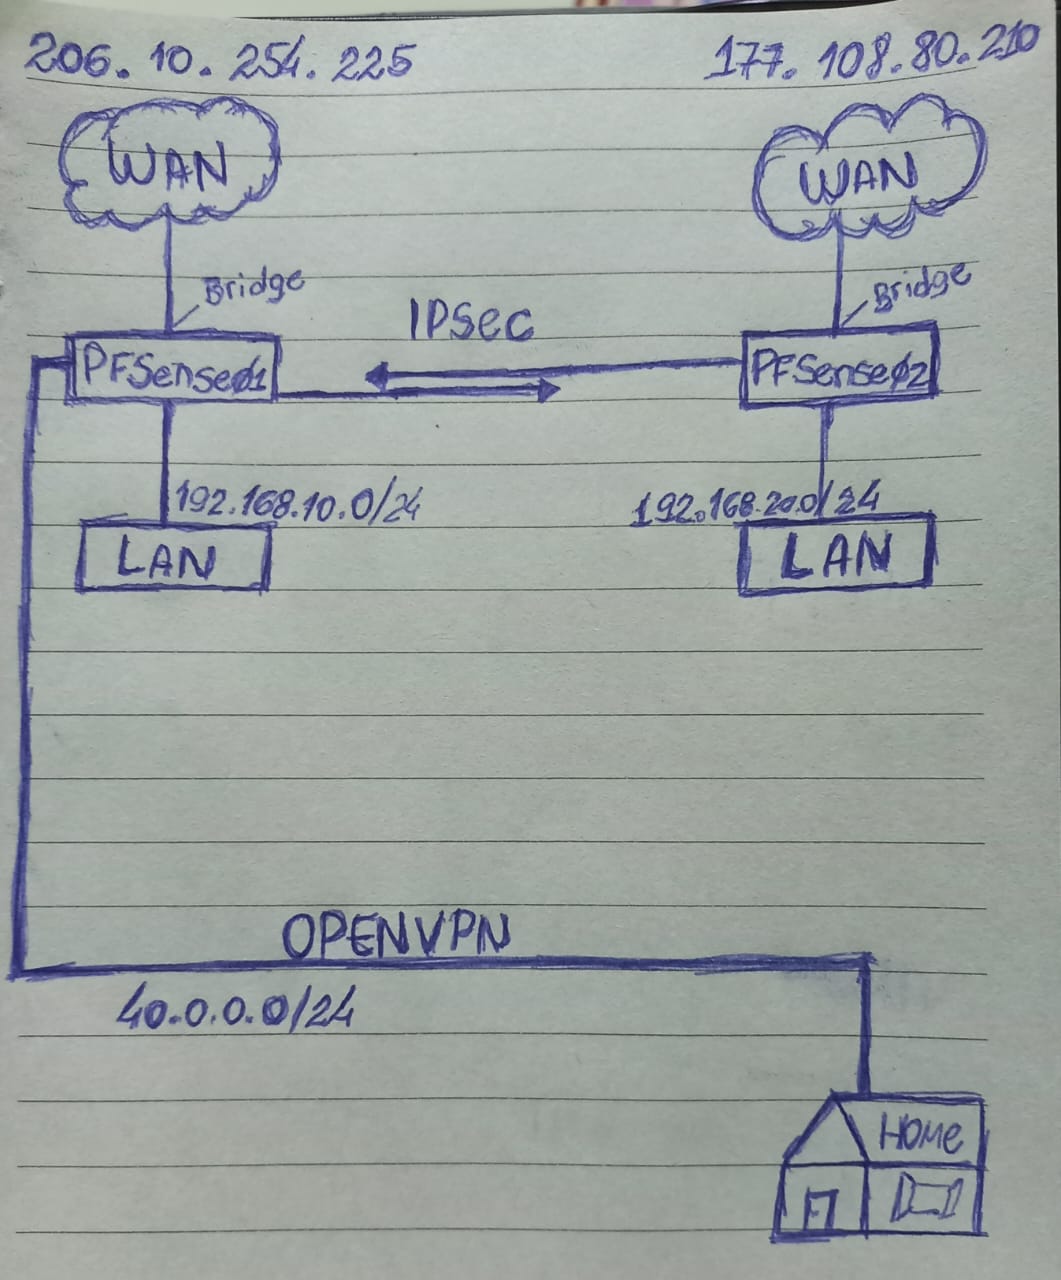 206.10.254.225
177.108.80.210
WAN
WAN
Bridge
Bridge
IPSec
PFSense01
PFSense02
192.168.10.0/24
192.168.20.0/24
LAN
LAN
OPENVPN
40.0.0.0/24
HOME